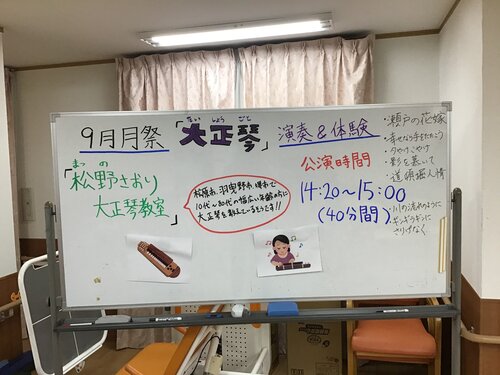 たいしょうごと
9月月祭「大正琴」演奏&体験
まつの
「松野さおり
大正琴教室」
松原市、羽曳野市、堺市にて
10代〜80代の幅広い年齢の方に
大正琴を教えているそうです!!
公演時間
14:20〜15:00
(40分間)
・瀬戸の花嫁
・幸せなら手をたたこう
・夕やけこやけ
・影を慕いて
・道頓堀人情
・川の流れのように
・ギンギラギンに
さりげなく